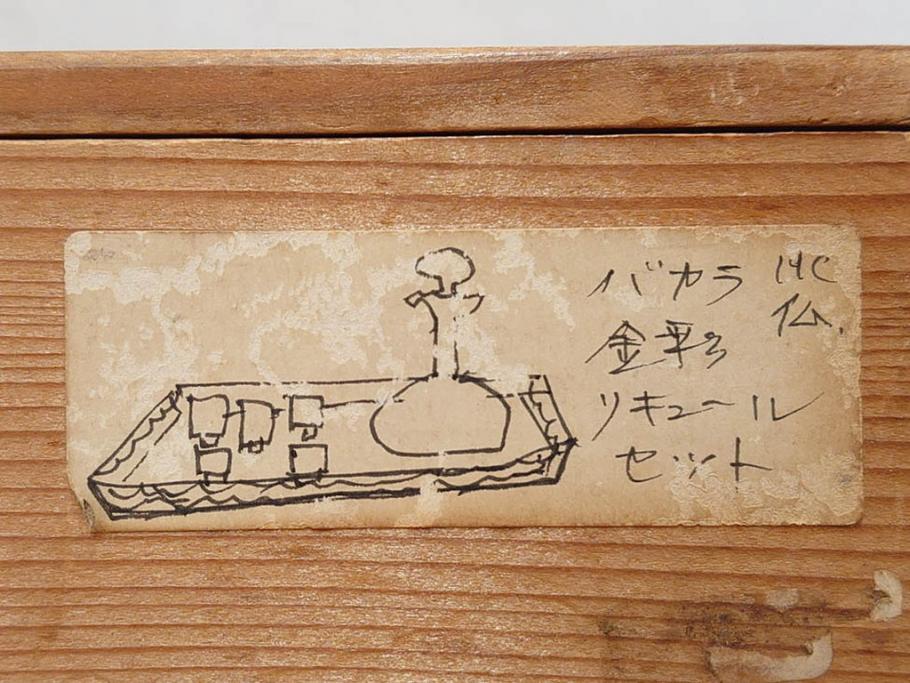 バカラ
金彩
リキュール
セット
19C
仏.